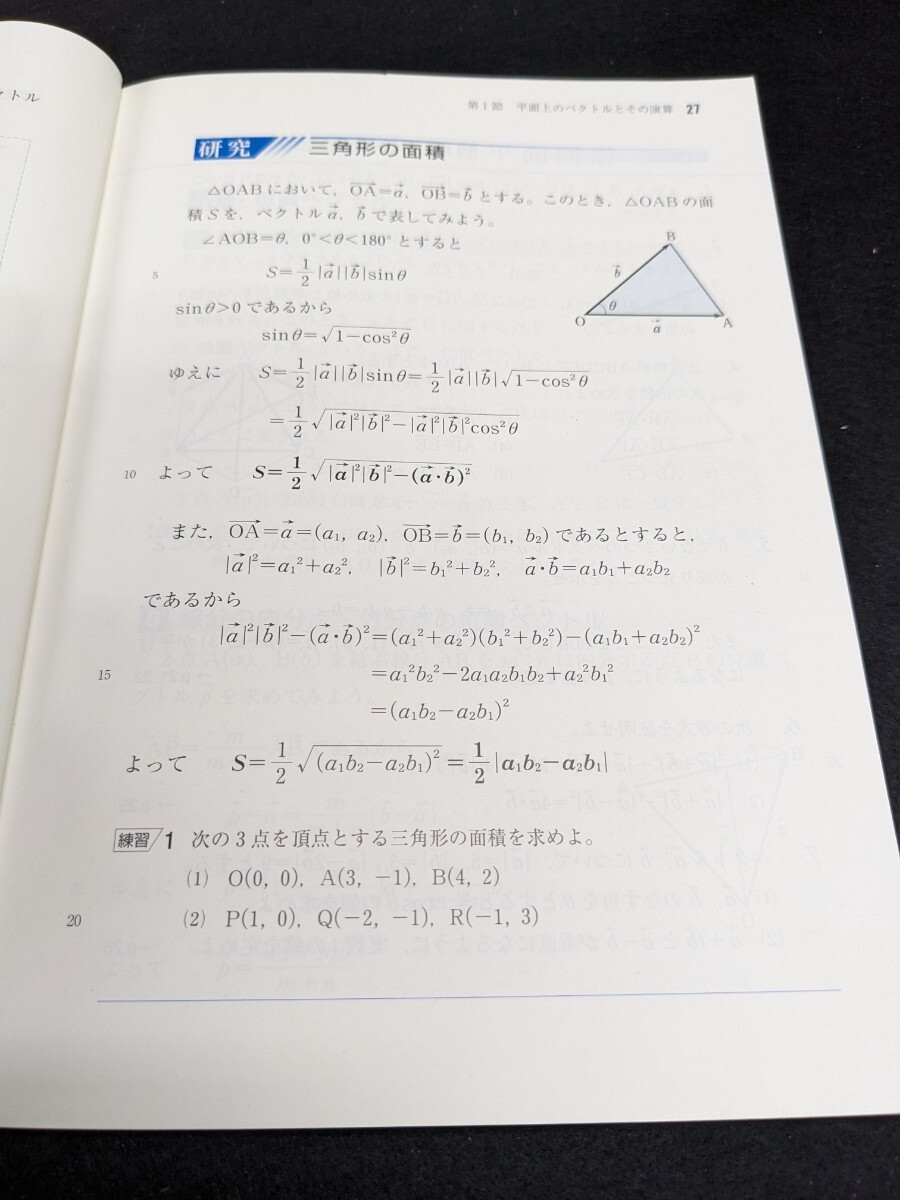 クトル
第1節 平面上のベクトルとその演算 27
研究 三角形の面積
△OABにおいて，OA→=a→，OB→=b→とする。このとき，△OABの面
積Sを，ベクトルa→，b→で表してみよう。
∠AOB=θ，0°<θ<180°とすると
5 S=1/2|a→||b→|sinθ
sinθ>0であるから
sinθ=√(1−cos²θ)
ゆえに S=1/2|a→||b→|sinθ=1/2|a→||b→|√(1−cos²θ)
=1/2√(|a→|²|b→|²−|a→|²|b→|²cos²θ)
10 よって S=1/2√(|a→|²|b→|²−(a→・b→)²)
B
b→
θ
O a→ A
また，OA→=a→=(a₁, a₂)，OB→=b→=(b₁, b₂)であるとすると，
|a→|²=a₁²+a₂²，|b→|²=b₁²+b₂²，a→・b→=a₁b₁+a₂b₂
であるから
|a→|²|b→|²−(a→・b→)²=(a₁²+a₂²)(b₁²+b₂²)−(a₁b₁+a₂b₂)²
15 =a₁²b₂²−2a₁a₂b₁b₂+a₂²b₁²
=(a₁b₂−a₂b₁)²
よって S=1/2√((a₁b₂−a₂b₁)²)=1/2|a₁b₂−a₂b₁|
練習1 次の3点を頂点とする三角形の面積を求めよ。
(1) O(0, 0)，A(3, −1)，B(4, 2)
20 (2) P(1, 0)，Q(−2, −1)，R(−1, 3)